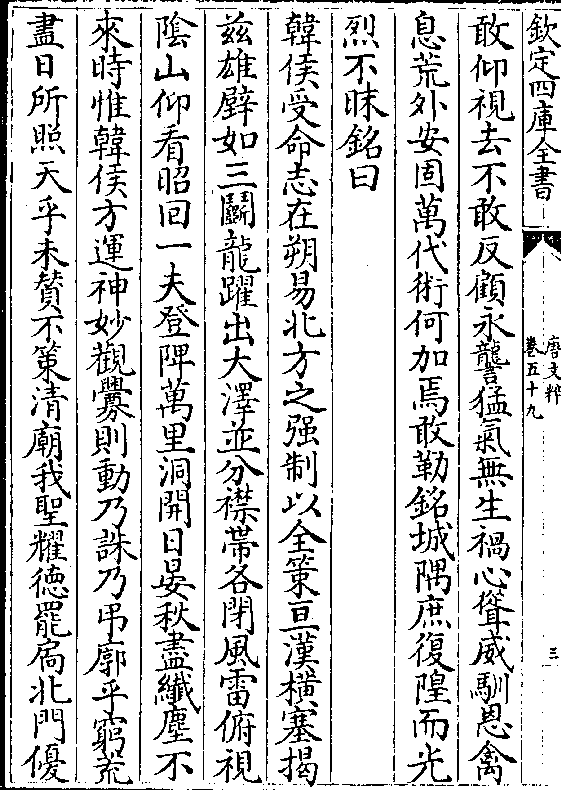 欽定四庫全書
唐文粹
卷五十九
三
敢仰視去不敢反顧永讋猛氣無生禍心聳威馴恩禽
息荒外安固萬代術何加焉敢勒銘城隅庶復隍而光
烈不昧銘曰
韓侯受命志在朔易北方之强制以全策亘漢横塞揭
兹雄壁如三鬭龍躍出大澤並分襟帶各閉風雷俯視
陰山仰看昭回一夫登陴萬里洞開日晏秋盡纖塵不
來時惟韓侯方運神妙觀釁則動乃誅乃弔廓乎窮荒
盡日所照天乎未贊不策清廟我聖耀德罷扄北門優